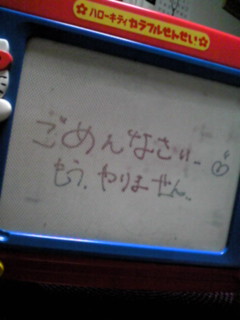 ☆ハローキティ カラフルせんせい☆
ごめんなさい。
もう、やりません。